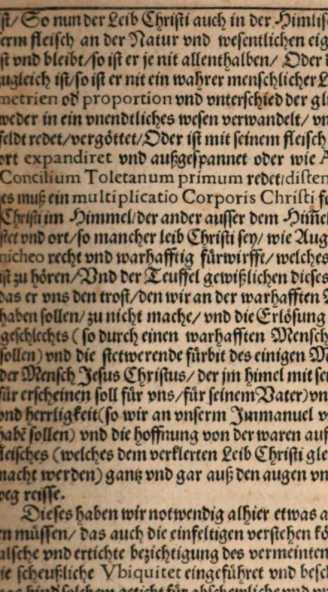 ist/ So nun der Leib Christi auch in der Himlisch
erm fleisch an der Natur vnd wesentlichen eig
st vnd bleibt/ so ist er je nit allenthalben/ Oder
zugleich ist/ so ist er nit ein wahrer menschlicher L
metrien od proportion vnd vnterschied der gl
weder in ein vnendtliches wesen verwandelt/ vn
feldt redet/ vergöttet/ Oder ist mit seinem fleisch
ort expandiret vnd außgespannet oder wie A
Concilium Toletanum primum redet/ disten
es muß ein multiplicatio Corporis Christi fo
Christi im Himmel/ der ander ausser dem Him̃el
stet vnd ort/ so mancher leib Christi sey/ wie Aug
nicheo recht vnd warhafftig fürwirfft/ welches
ist zu hören/ Vnd der Teuffel gewißlichen dieses
das er vns den trost/ den wir an der warhafften
haben sollen/ zu nicht mache/ vnd die Erlösung
geschlechts ( so durch einen warhafften Mensch
sollen) vnd die stetwerende fürbit des einigen M
der Mensch Jesus Christus/ der im himel mit sei
für erscheinen soll für vns/ für seinem Vater) vn
vnd herrligkeit (so wir an vnserm Immanuel v
habẽ sollen) vnd die hoffnung von der waren auf
fleisches (welches dem verklerten Leib Christi gle
macht werden) gantz vnd gar auß den augen vn
weg reisse.
Dieses haben wir notwendig alhier etwas a
en müssen/ das auch die einfeltigen verstehen kö
alsche vnd ertichte bezichtigung des vermeinten
ie scheußliche Vbiquitet eingeführet vnd besch